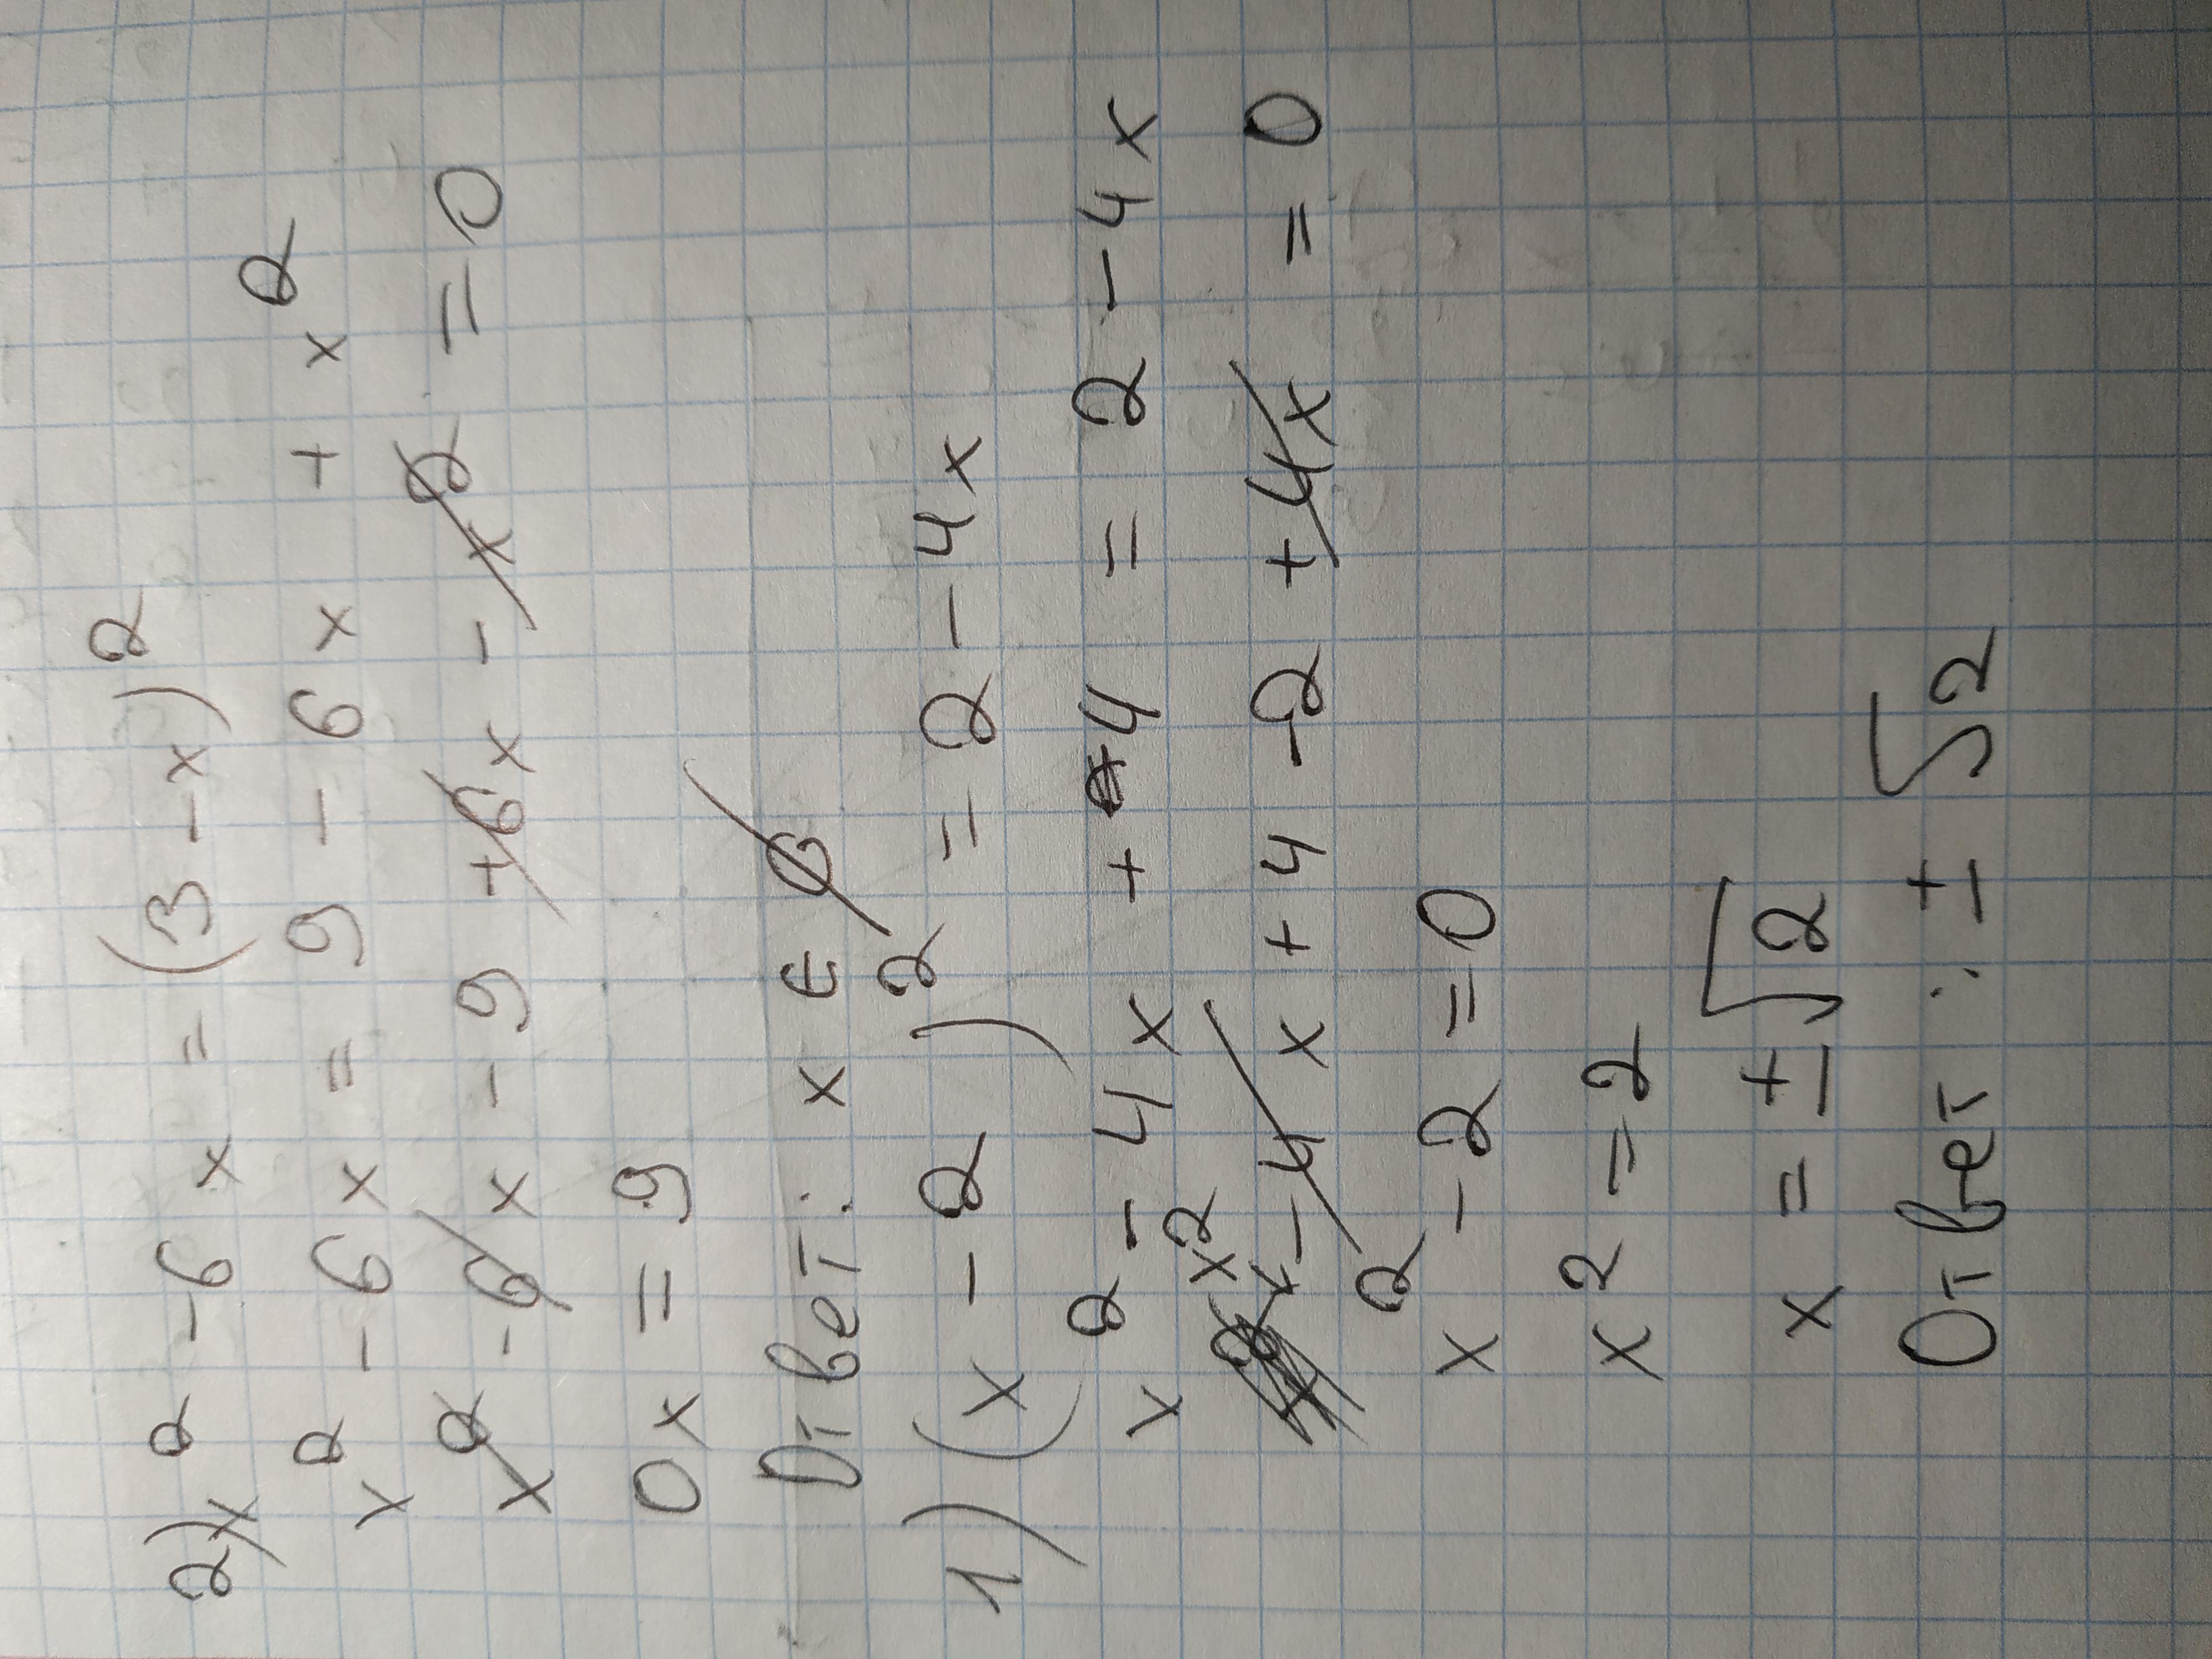 2) x² - 6x = (3 - x)²
x² - 6x = 9 - 6x + x²
x² - 6x - 9 + 6x - x² = 0
0x = 9
Ответ: x ∈ ∅
1) (x - 2)² = 2 - 4x
x² - 4x + 4 = 2 - 4x
x² - 4x + 4 - 2 + 4x = 0
x² - 2 = 0
x² = 2
x = ± √2
Ответ: ± √2